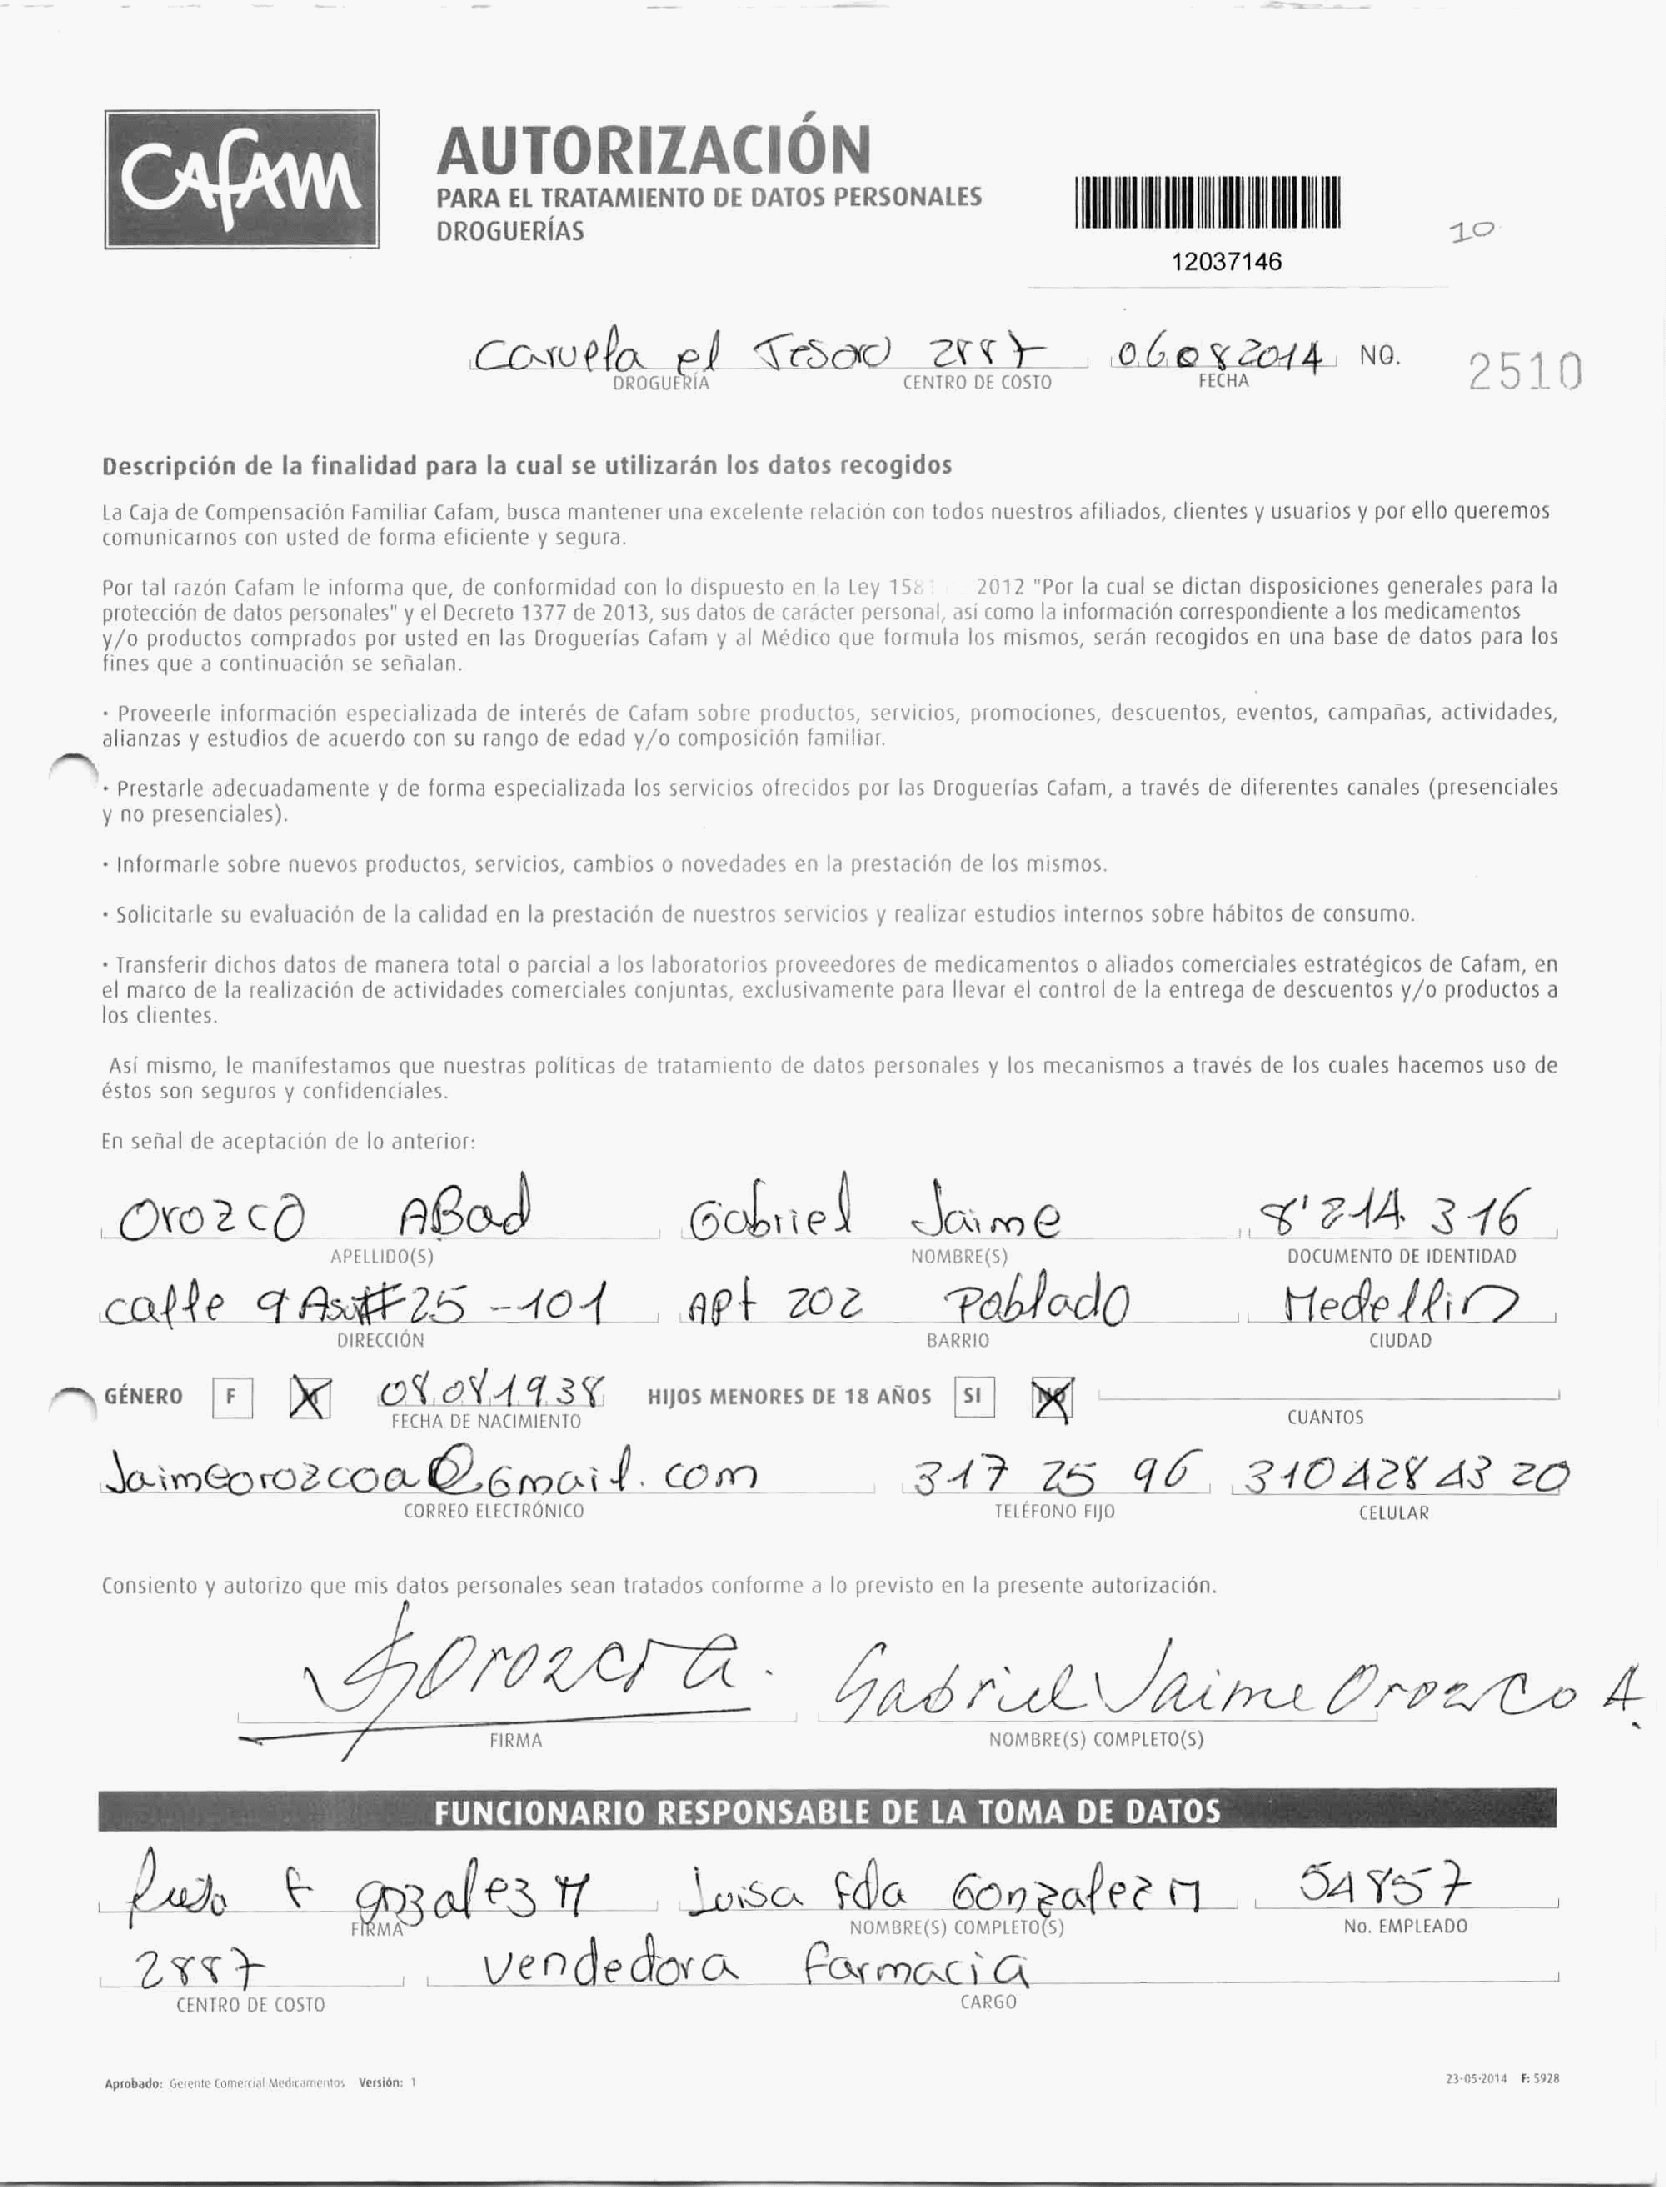 Cafam
AUTORIZACIÓN
PARA EL TRATAMIENTO DE DATOS PERSONALES
DROGUERÍAS
12037146
10
Caruela el Tesoro 2887 06082014 NO. 2510
DROGUERÍA CENTRO DE COSTO FECHA
Descripción de la finalidad para la cual se utilizarán los datos recogidos
La Caja de Compensación Familiar Cafam, busca mantener una excelente relación con todos nuestros afiliados, clientes y usuarios y por ello queremos
comunicarnos con usted de forma eficiente y segura.
Por tal razón Cafam le informa que, de conformidad con lo dispuesto en la Ley 1581 2012 "Por la cual se dictan disposiciones generales para la
protección de datos personales" y el Decreto 1377 de 2013, sus datos de carácter personal, así como la información correspondiente a los medicamentos
y/o productos comprados por usted en las Droguerías Cafam y al Médico que formula los mismos, serán recogidos en una base de datos para los
fines que a continuación se señalan.
· Proveerle información especializada de interés de Cafam sobre productos, servicios, promociones, descuentos, eventos, campañas, actividades,
alianzas y estudios de acuerdo con su rango de edad y/o composición familiar.
· Prestarle adecuadamente y de forma especializada los servicios ofrecidos por las Droguerías Cafam, a través de diferentes canales (presenciales
y no presenciales).
· Informarle sobre nuevos productos, servicios, cambios o novedades en la prestación de los mismos.
· Solicitarle su evaluación de la calidad en la prestación de nuestros servicios y realizar estudios internos sobre hábitos de consumo.
· Transferir dichos datos de manera total o parcial a los laboratorios proveedores de medicamentos o aliados comerciales estratégicos de Cafam, en
el marco de la realización de actividades comerciales conjuntas, exclusivamente para llevar el control de la entrega de descuentos y/o productos a
los clientes.
Así mismo, le manifestamos que nuestras políticas de tratamiento de datos personales y los mecanismos a través de los cuales hacemos uso de
éstos son seguros y confidenciales.
En señal de aceptación de lo anterior:
Orozco ABad Gabriel Jaime 8'214 316
APELLIDO(S) NOMBRE(S) DOCUMENTO DE IDENTIDAD
calle 9 #25-101 Apt 202 Poblado Medellin
DIRECCIÓN BARRIO CIUDAD
GÉNERO F X 08081938 HIJOS MENORES DE 18 AÑOS SI X
FECHA DE NACIMIENTO CUANTOS
Jaimeorozcoa@Gmail.com 317 25 96 310 428 43 20
CORREO ELECTRÓNICO TELÉFONO FIJO CELULAR
Consiento y autorizo que mis datos personales sean tratados conforme a lo previsto en la presente autorización.
Gabriel Jaime Orozco A.
FIRMA NOMBRE(S) COMPLETO(S)
FUNCIONARIO RESPONSABLE DE LA TOMA DE DATOS
F gozalez M Luisa Fda Gonzalez M 54857
FIRMA NOMBRE(S) COMPLETO(S) No. EMPLEADO
2887 Vendedora farmacia
CENTRO DE COSTO CARGO
Aprobado: Gerente Comercial Medicamentos Versión: 1 23-05-2014 F: 5928